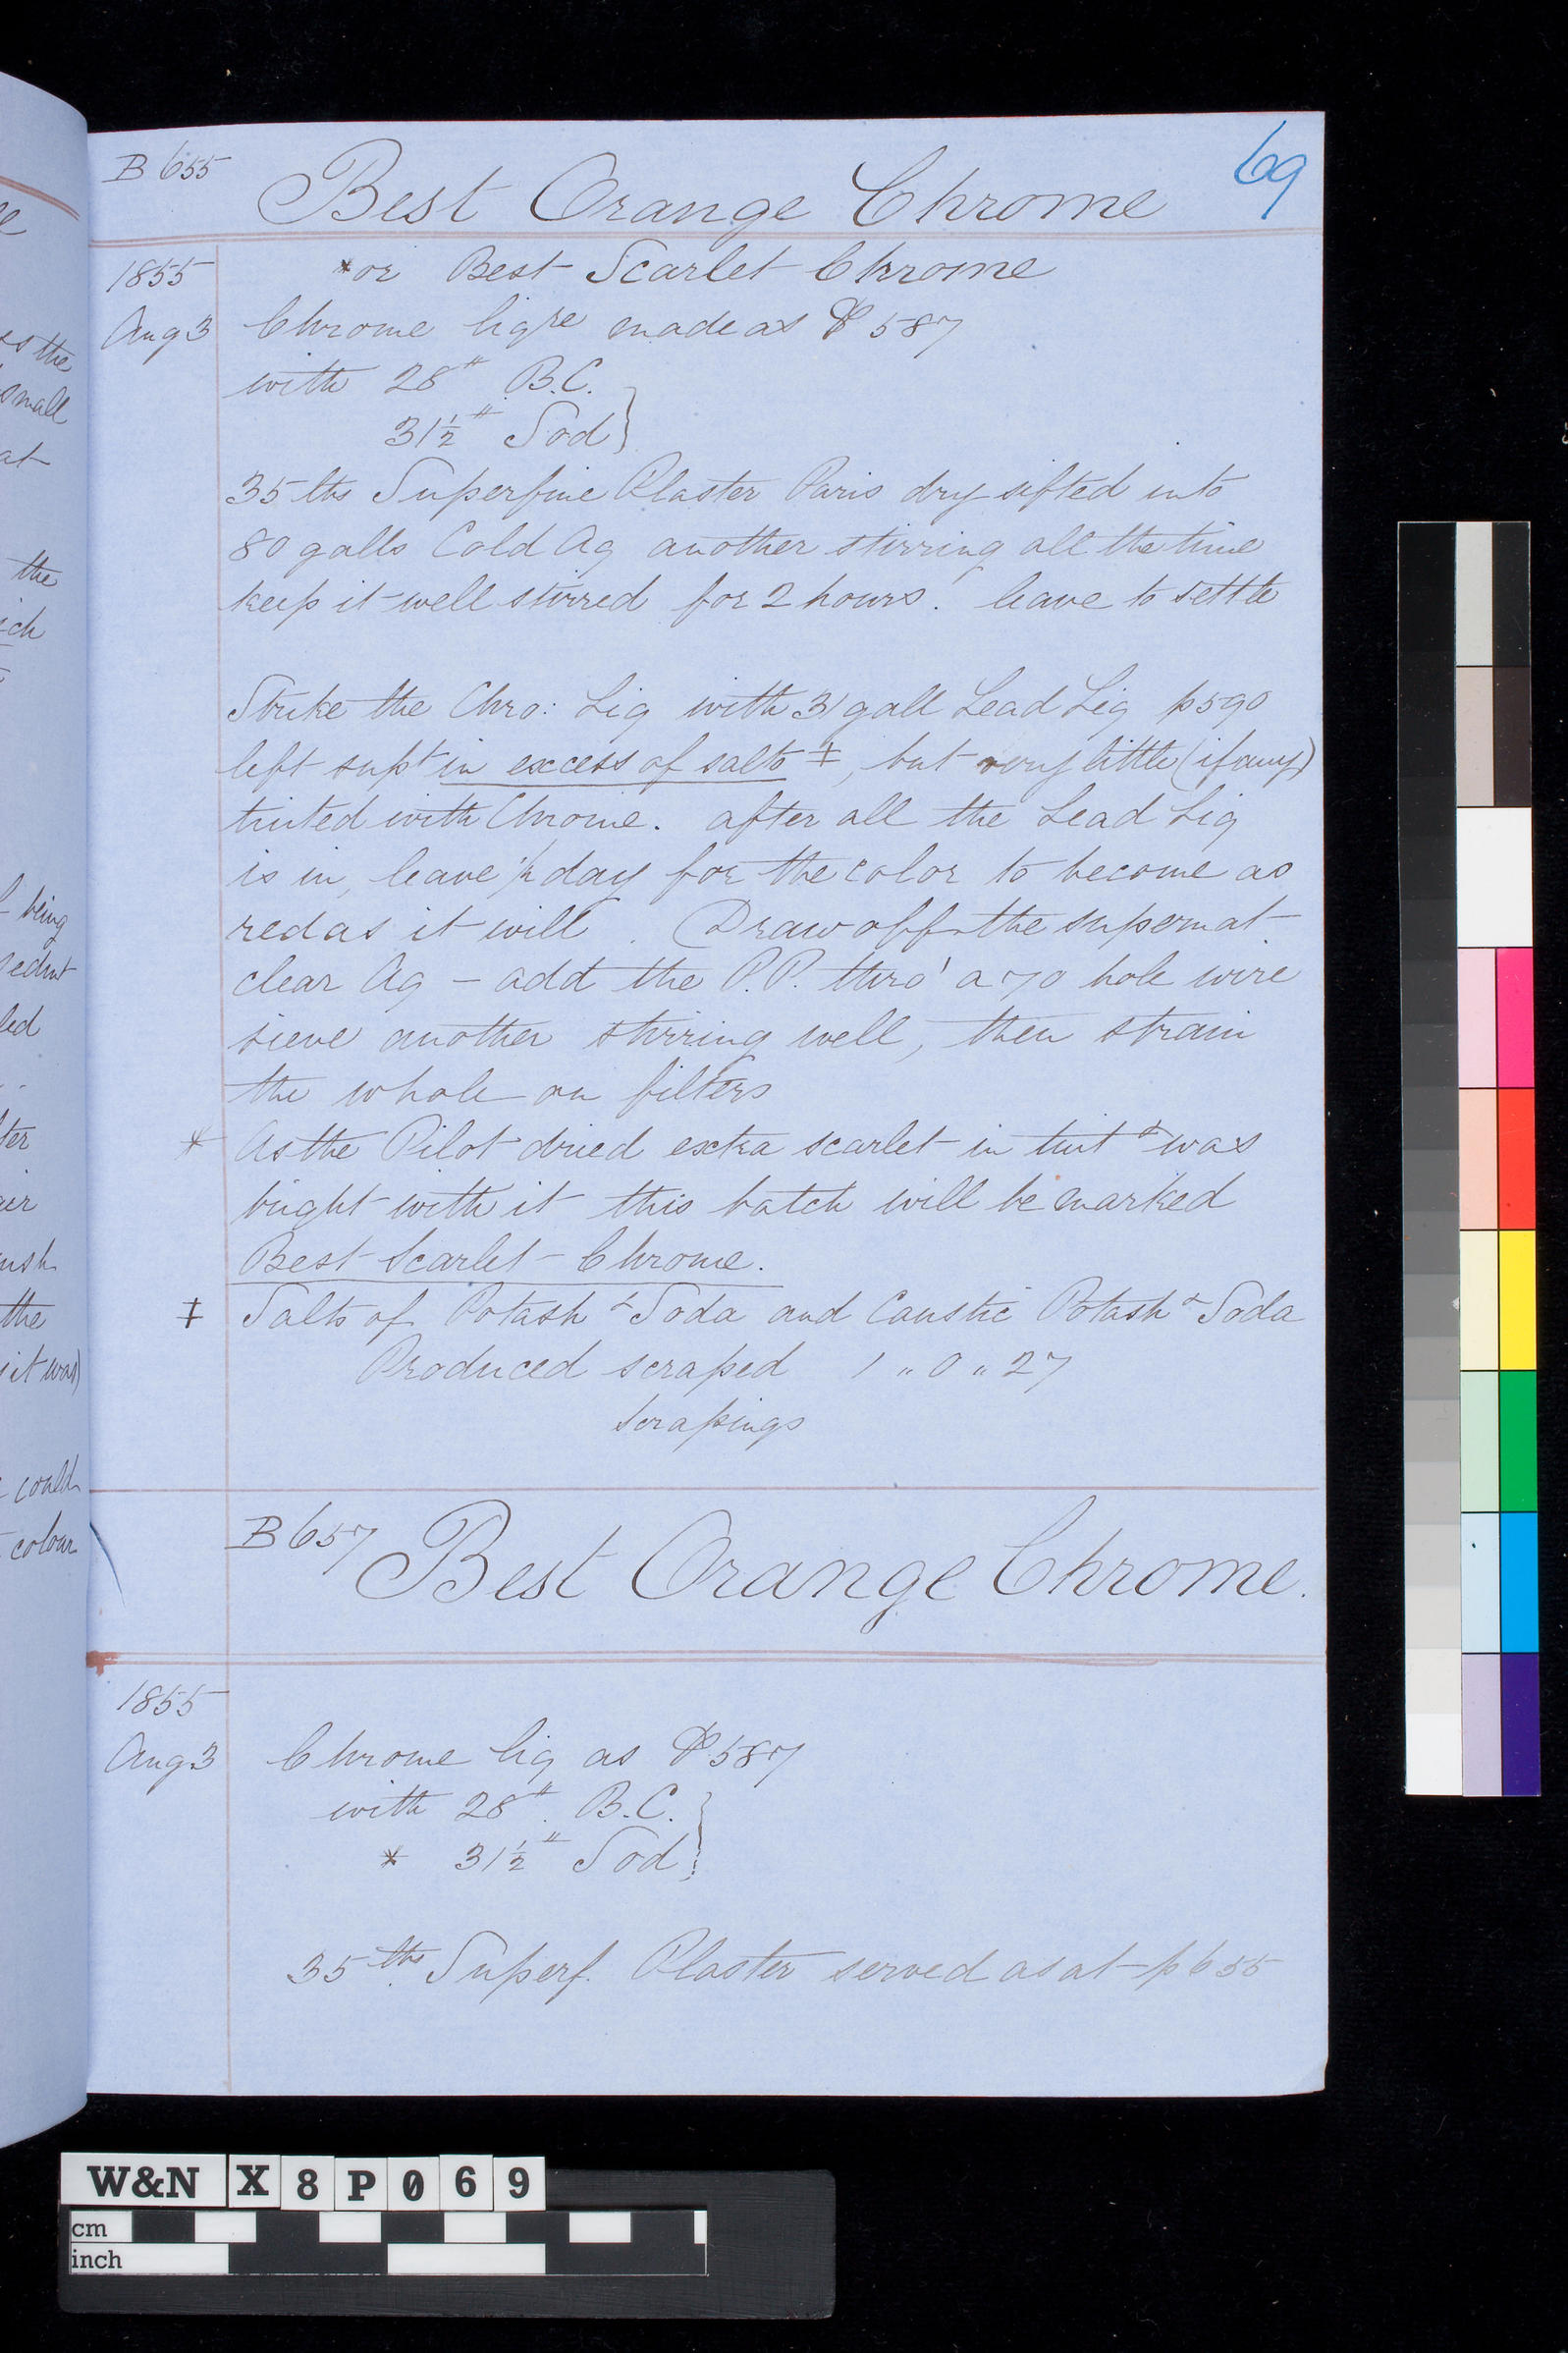 B 655
69
Best Orange Chrome
1855
*or Best Scarlet Chrome
Aug 3
Chrome liqre made as P 587
with 28# B.C.
31½# Sod
35 lbs Superfine Plaster Paris dry sifted into
80 galls Cold Aq another stirring all the time
keep it well stirred for 2 hours. leave to settle
Strike the Chro: Liq with 31 gall Lead Liq p590
left supt in excess of salts ‡, but very little (if any)
tinted with Chrome. after all the Lead Liq
is in, leave ½ day for the color to become as
red as it will. Draw off the supernat
clear Aq – add the P.P. thro' a 70 hole wire
sieve another stirring well, then strain
the whole on filters
* As the Pilot dried extra scarlet in tint & was
bright with it this batch will be marked
Best Scarlet Chrome.
‡ Salts of Potash & Soda and Caustic Potash & Soda
Produced scraped 1 " 0 " 27
Scrapings
B 657
Best Orange Chrome.
1855
Aug 3
Chrome liq as P 587
with 28# B.C.
* 31½# Sod
35 lbs Superf. Plaster served as at p 655
the
small
at
the
ich
being
led
ter
the
it was)
could
colour
W&N X8P069
cm
inch